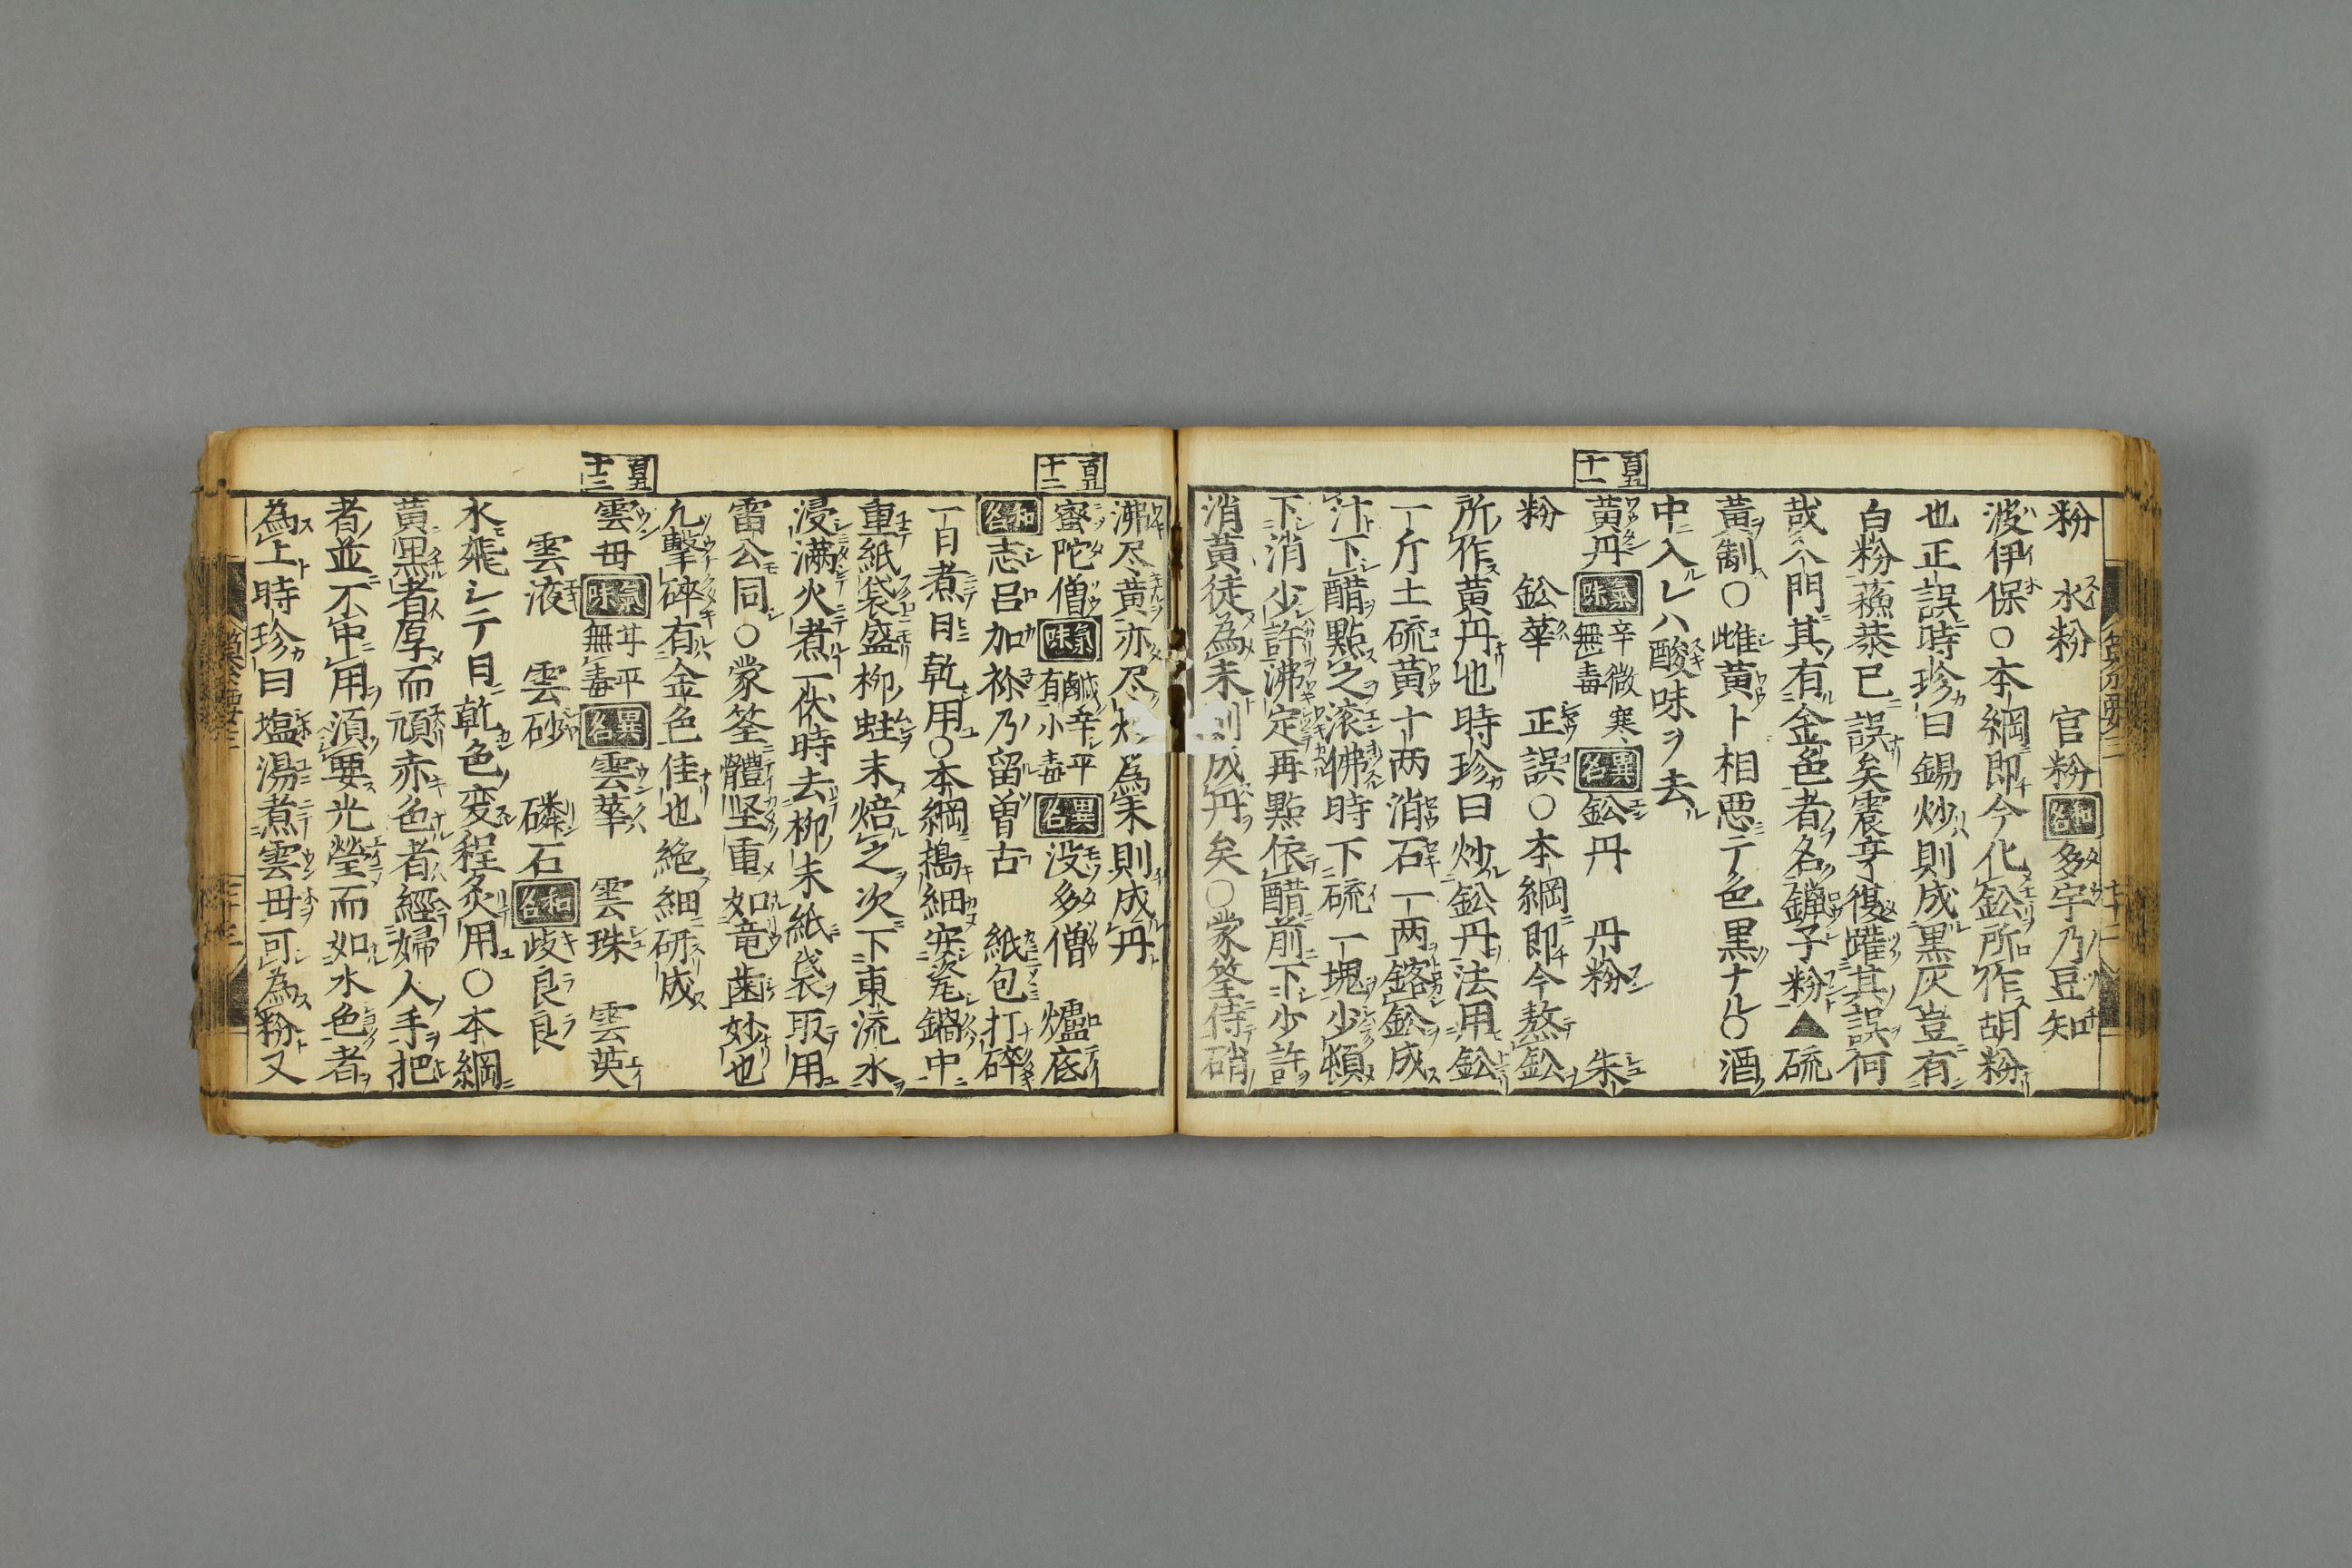 粉　水粉　官粉 和名 多宇乃豆知
波伊保〇本綱即今化鈆所作胡粉
也正誤時珍曰錫炒則成黒灰豈有
白粉蘓恭已誤矣震亨復蹝其誤何
哉入門其有金色者名鑞子粉▲硫
黄制〇雌黄ト相悪ニテ色黒ナル〇酒
中入レハ酸味ヲ去ル
百五十一
黄丹 氣味 辛微寒無毒 異名 鈆丹　丹粉　朱
粉　鈆華　正誤〇本綱即今熬鈆
所作黄丹也時珍曰炒鈆丹法用鈆
一斤土硫黄十两消石一两鎔鈆成
汁下醋點之滚佛時下硫一塊少頓
下消少許沸定再點依醋前下少許
消黄徒為末則成丹矣〇蒙筌侍硝
沸尽黄亦尽炒為末則成丹
百五十二
蜜陀僧 氣味 鹹辛平有小毒 異名 没多僧　爐底
和名 志呂加祢乃留曽古　紙包打碎
一日煮日乾用〇本綱搗細安瓷鍋中
重紙袋盛柳蛀末焙之次下東流水
浸满火煮一伏時去柳末紙袋取用
雷公同〇蒙筌體坚重如竜歯妙也
凢擊碎有金色佳也絶細研成
百五十三
雲母 氣味 甘平無毒 異名 雲華　雲珠　雲英
雲液　雲砂　磷石 和名 岐良良
水飛シテ日乾色変程炙用〇本綱
黄黒者厚而頑赤色者經婦人手把
者並不中用須要光瑩而如水色者
為上時珍曰塩湯煮雲母可為粉又